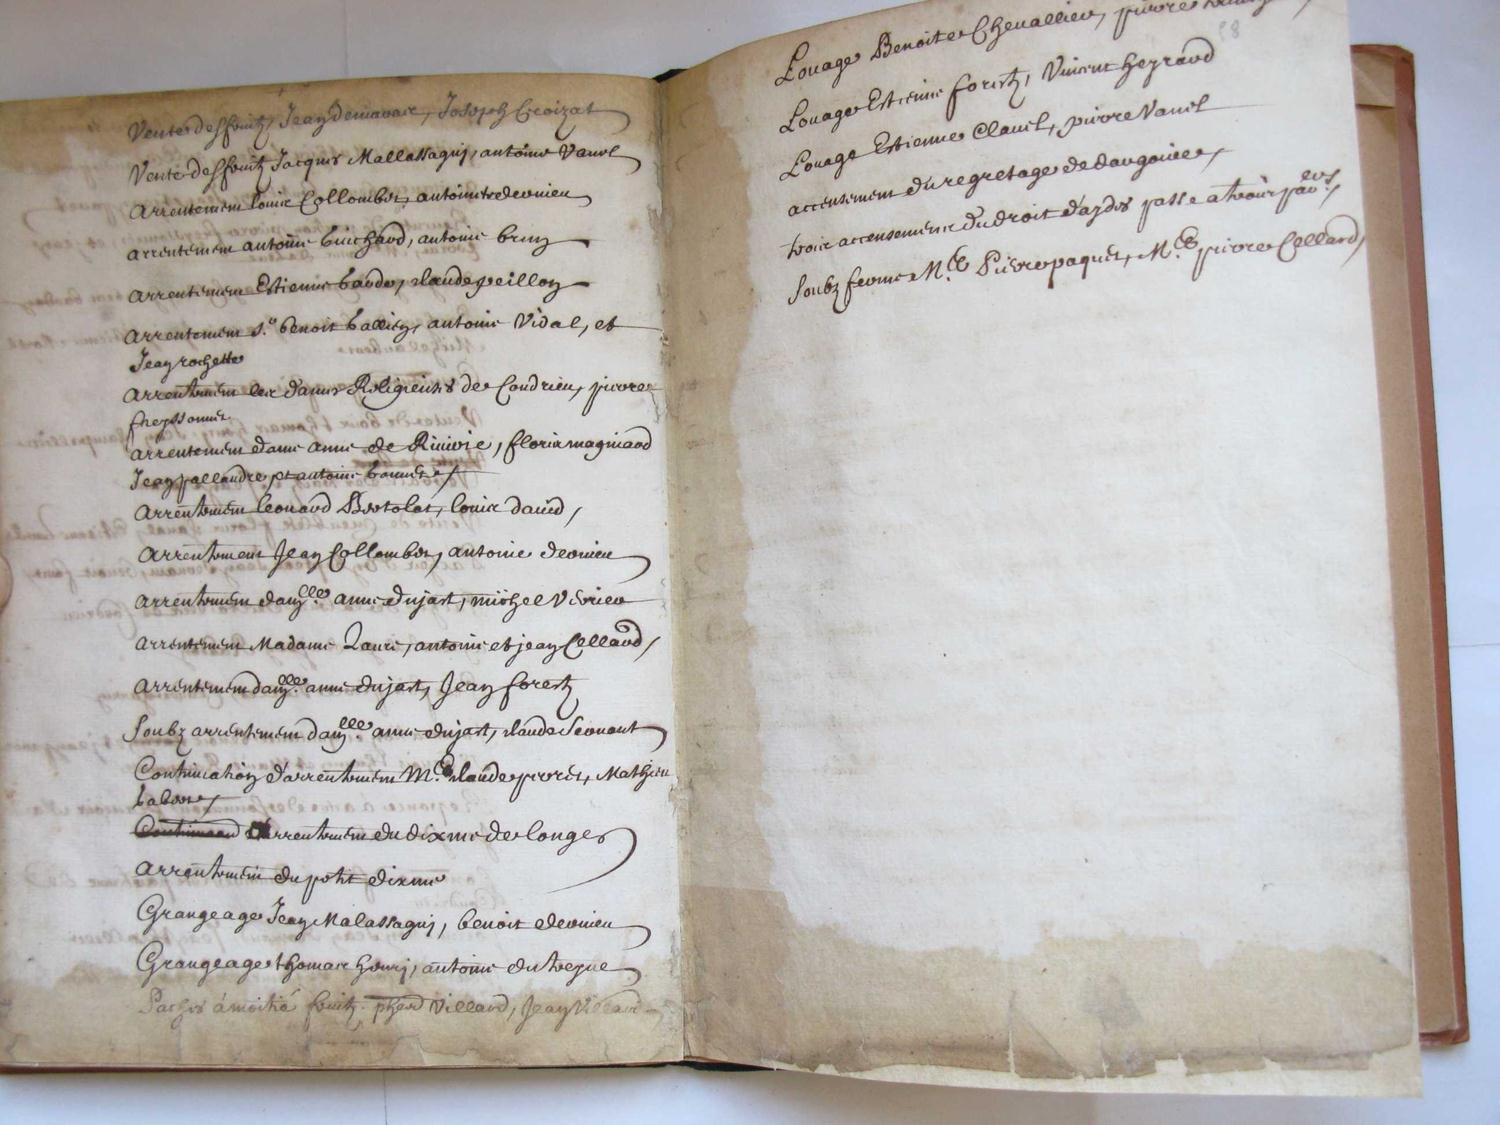 Vente des fruitz, Jean Demavair, Joseph Croizat
Vente des fruitz Jacques Mallassagnj, antoine Vanel
arrentement louis Collombet, antoine devnieu
arrentement antoine Guichard, antoine brun
arrentement Estienne baudo, claude peillon
arrentement s.r benoit balley, antoine Vidal, et
Jean rochette
arrentemem les dames Religieuses de Condrieu, pierre
freyssonnet
arrentemem dame anne de Riuirie, floris magniaud
Jean pallandre et antoine bonnet /
arrentemem leonard Bertolat, louis dauid,
arrentement Jean Collombet, antoine devnieu
arrentemem dam.lle anne dujast, michel Verrier
arrentemem Madame Laure, antoine et jean Cellard,
arrentemem dam.lle anne dujast, Jean forestz
soubz arrentemem dam.lle anne dujast, claude
Continuation d'arrentemem M.e claude Mathieu
arrentemem du dixme de longes
arrentemem du petit dixme
Grangeage Jean Malassagnj, benoit devnieu
Grangeage thomas henrj, antoine du treyue
a moitié fruitz Villard, Jean Villard
Louage Benoite Cheuallier, pierre
Louage Estienne forestz, Vincent heyraud
Louage Estienne Clauel, pierre Vanel
accensement du regretage de dargoire,
trois accensement du droit d'aydes passe a trois
soubz ferme M.e Pierre paquet, M.e pierre Cellard,